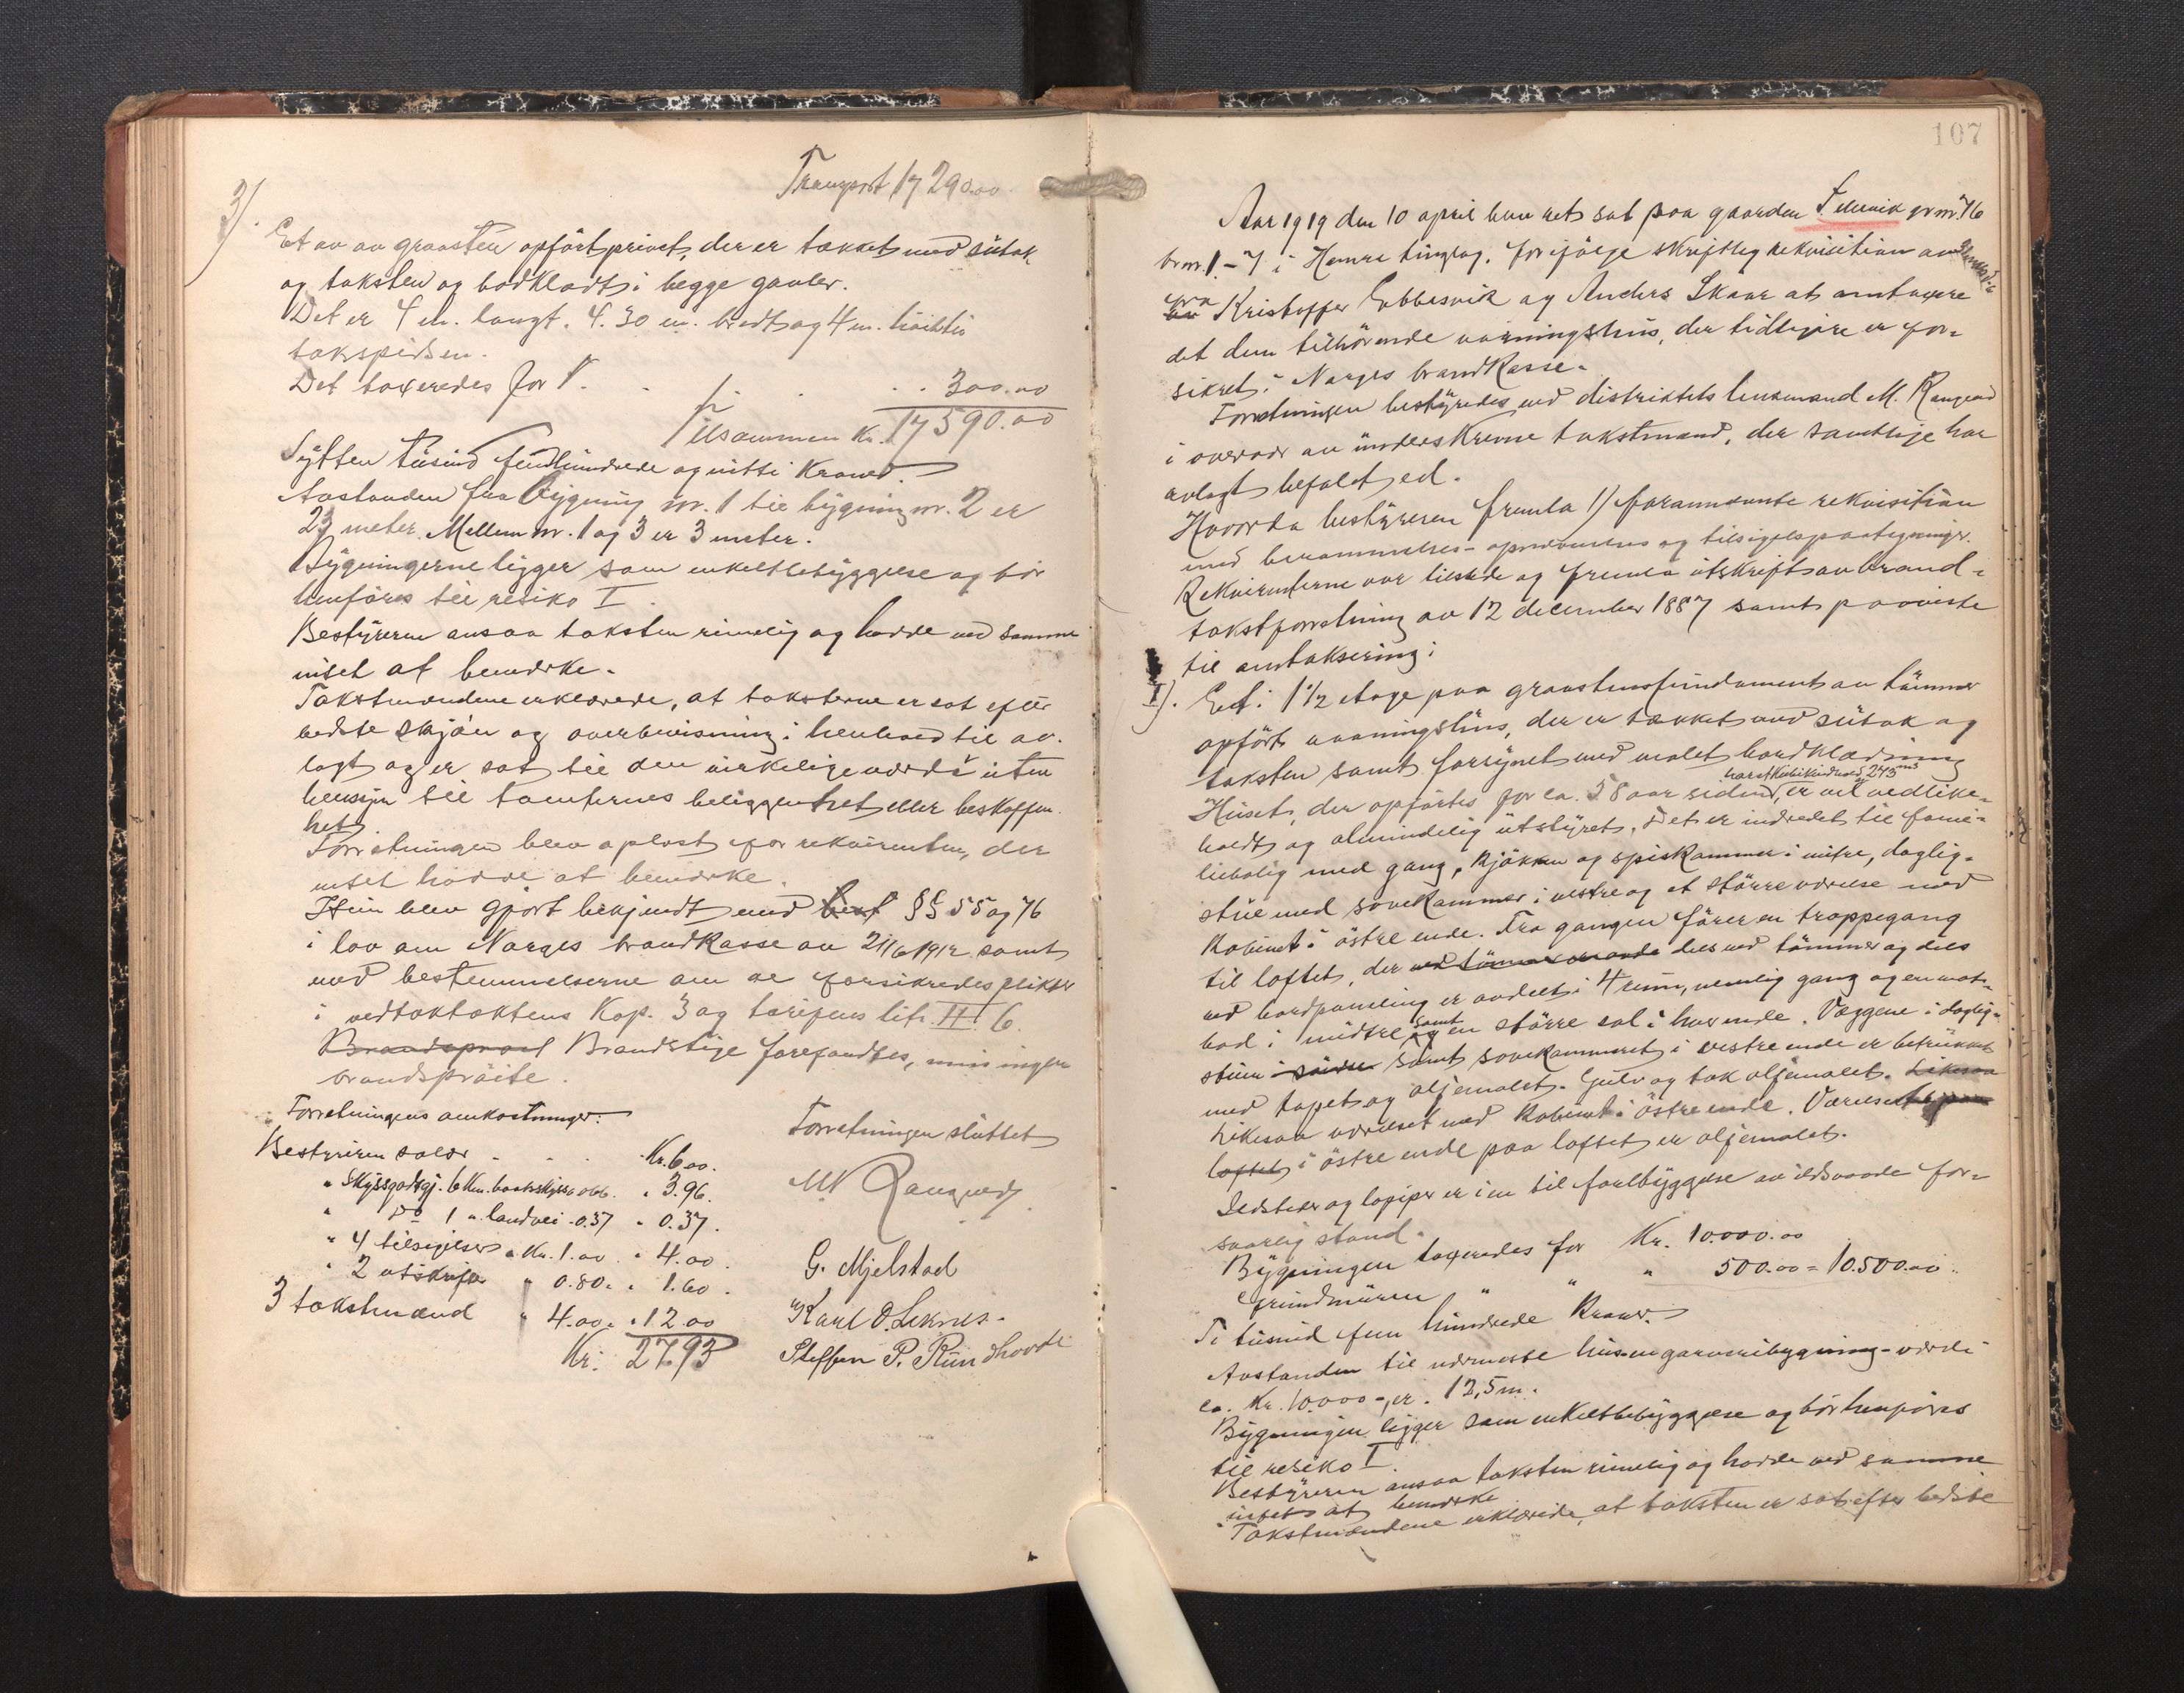 Transport 17290.00
3).
Et av av graasten opført privet, der er tækket med sutak
og taksten og bordklædt i begge gavler.
Det er 4 m. langt. 4.30 m. bredt og 4 m. høit til
takspidsen.
Det taxeredes for Kr. . . . 300.00
Tilsammen Kr. 17590.00
Sytten tusind femhundrede og nitti Kroner.
Avstanden fra bygning nr. 1 til bygning nr. 2 er
23 meter. Mellem nr. 1 og 3 er 3 meter.
Bygningerne ligger som enkeltbebyggelse og bør
henføres til resiko I.
Bestyreren ansaa taksten rimelig og hadde ved samme
intet at bemerke.
Takstmændene erklærede, at taksterne er sat efter
bedste skjøn og overbevisning i henhold til av-
lagt ed og er sat til den virkelige værdi uten
hensyn til tomternes beliggenhet eller beskaffen-
het.
Forretningen blev oplæst for rekvirenten, der
intet hadde at bemerke.
Hun blev gjort bekjendt med §§ 55 og 76
i lov om Norges brandkasse av 21/6 1912 samt
med bestemmelserne om de forsikredes plikter
i vedtæktens Kap. 3 og tarifens litr. II. 6.
Brandstige forefandtes, men ingen
brandsprøite.
Forretningens omkostninger:
Bestyreren salær . . . Kr. 6.00.
" Skyssgodtgj. 6 Km. baatskyss a 0.66. " 3.96.
" do 1 " landvei -0.37 " 0.37.
" 4 tilsigelser a Kr. 1.00 . " 4.00.
" 2 utskrifter " 0.80. " 1.60.
3 takstmænd " 4.00. " 12.00
Kr. 27.93
Forretningen sluttet
M Rangved
G. Mjelstad
Karl O. Leknes.
Steffen P. Rundhovde
107
Aar 1919 den 10 april blev ret sat paa gaarden gr nr. 76
br nr. 1 - 7 i Hamre tinglag. Ifølge skriftlig rekvisition
fra Kristoffer Eobbesvik og Anders Skaar at omtaxere
det dem tilhørende vaaningshus, der tidligere er for-
sikret i Norges brandkasse.
Forretningen bestyredes ved distriktets lensmand M. Rangved
i overvær av underskrevne takstmænd, der samtlige har
avlagt befalet ed.
Hvorda bestyreren fremla 1) forannævnte rekvisition
med berammelses- opnævnelses og tilsigelsespaategninger.
Rekvirenterne var tilstede og fremla utskrift av brand-
takstforretning av 12 december 1887 samt paaviste
til omtaksering:
I). Et: 1 1/2 etage paa graastensfundament av tømmer
opført vaaningshus, der er tækket med sutak og
taksten samt forsynet med malet bordklædning
har et kubikindhold 243 m3
Huset, der opførtes for ca. 58 aar siden, er vel vedlike-
holdt og almindelig utstyret. Det er indredet til fami-
liebolig med gang, kjøkken og spiskammer i midtre, daglig-
stue med sovekammer i vestre og et større værelse med
kabinet i østre ende. Fra gangen fører en trappegang
til loftet, der ved tømmer dels ved tømmer og dels
ved bordpaneling er avdelt i 4 rum, nemlig gang og en mat-
bod i midtre samt en større sal i hver ende. Væggene i daglig-
stuen samt sovekammeret i vestre ende er betrukket
med tapet og oljemalet. Gulv og tak oljemalet.
Likesaa værelset med kabinet i østre ende. Værelset
loftet i østre ende paa loftet er oljemalet.
Ildsteder og løpiper er i en til forebyggelse av ildsvaade for-
svarlig stand.
Bygningen taxeredes for Kr. 10.000.00
Grundmuren " " " 500.00 = 10.500.00
Ti tusind fem hundrede Kroner.
Avstanden til nærmeste hus en garveribygning - værdi
ca. Kr. 10.000 -, er. 12,5 m.
Bygningen ligger som enkeltbebyggelse og bør henføres
til resiko I.
Bestyreren ansaa taksten rimelig og hadde ved samme
intet at bemerke
Takstmændene erklærede, at taksten er sat efter bedste